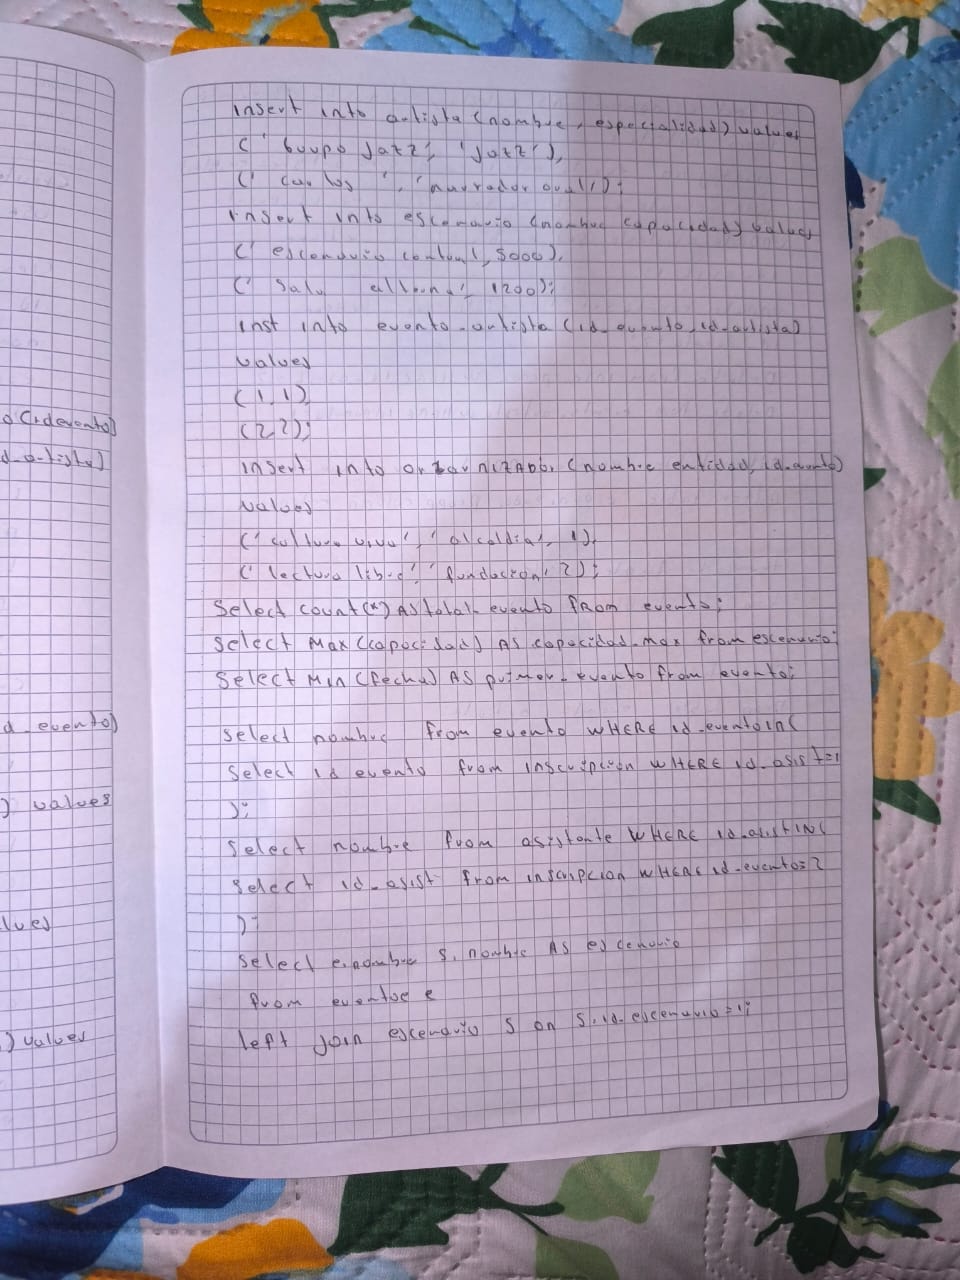 o (idevento)
d_artista)
d_evento)
) values
lues
) values
insert into artista (nombre, especialidad) values
(' Guupo jazz', 'jazz'),
(' carlos ', 'narrador oral');
insert into escenario (nombre capacidad) values
(' escenario central, 5000),
(' Sala alterna', 1200);
inst into evento_artista (id_evento, id_artista)
values
(1,1),
(2,2);
insert into (nombre entidad, id_evento)
values
(' cultura viva', 'alcaldia', 1),
(' lectura libre', 'fundacion' 2);
Select count(*) AS total_evento from evento;
Select Max (capacidad) AS capacidad_max from escenario;
Select Min (fecha) AS primer_evento from evento;
Select nombre from evento WHERE id_evento in(
Select id evento from inscripcion WHERE id_asist=1
);
Select nombre from asistente WHERE id_asist IN(
Select id_asist from inscripcion WHERE id_evento=2
);
Select e.nombre s.nombre AS escenario
from e
left join escenario s on s.id_escenario=1;